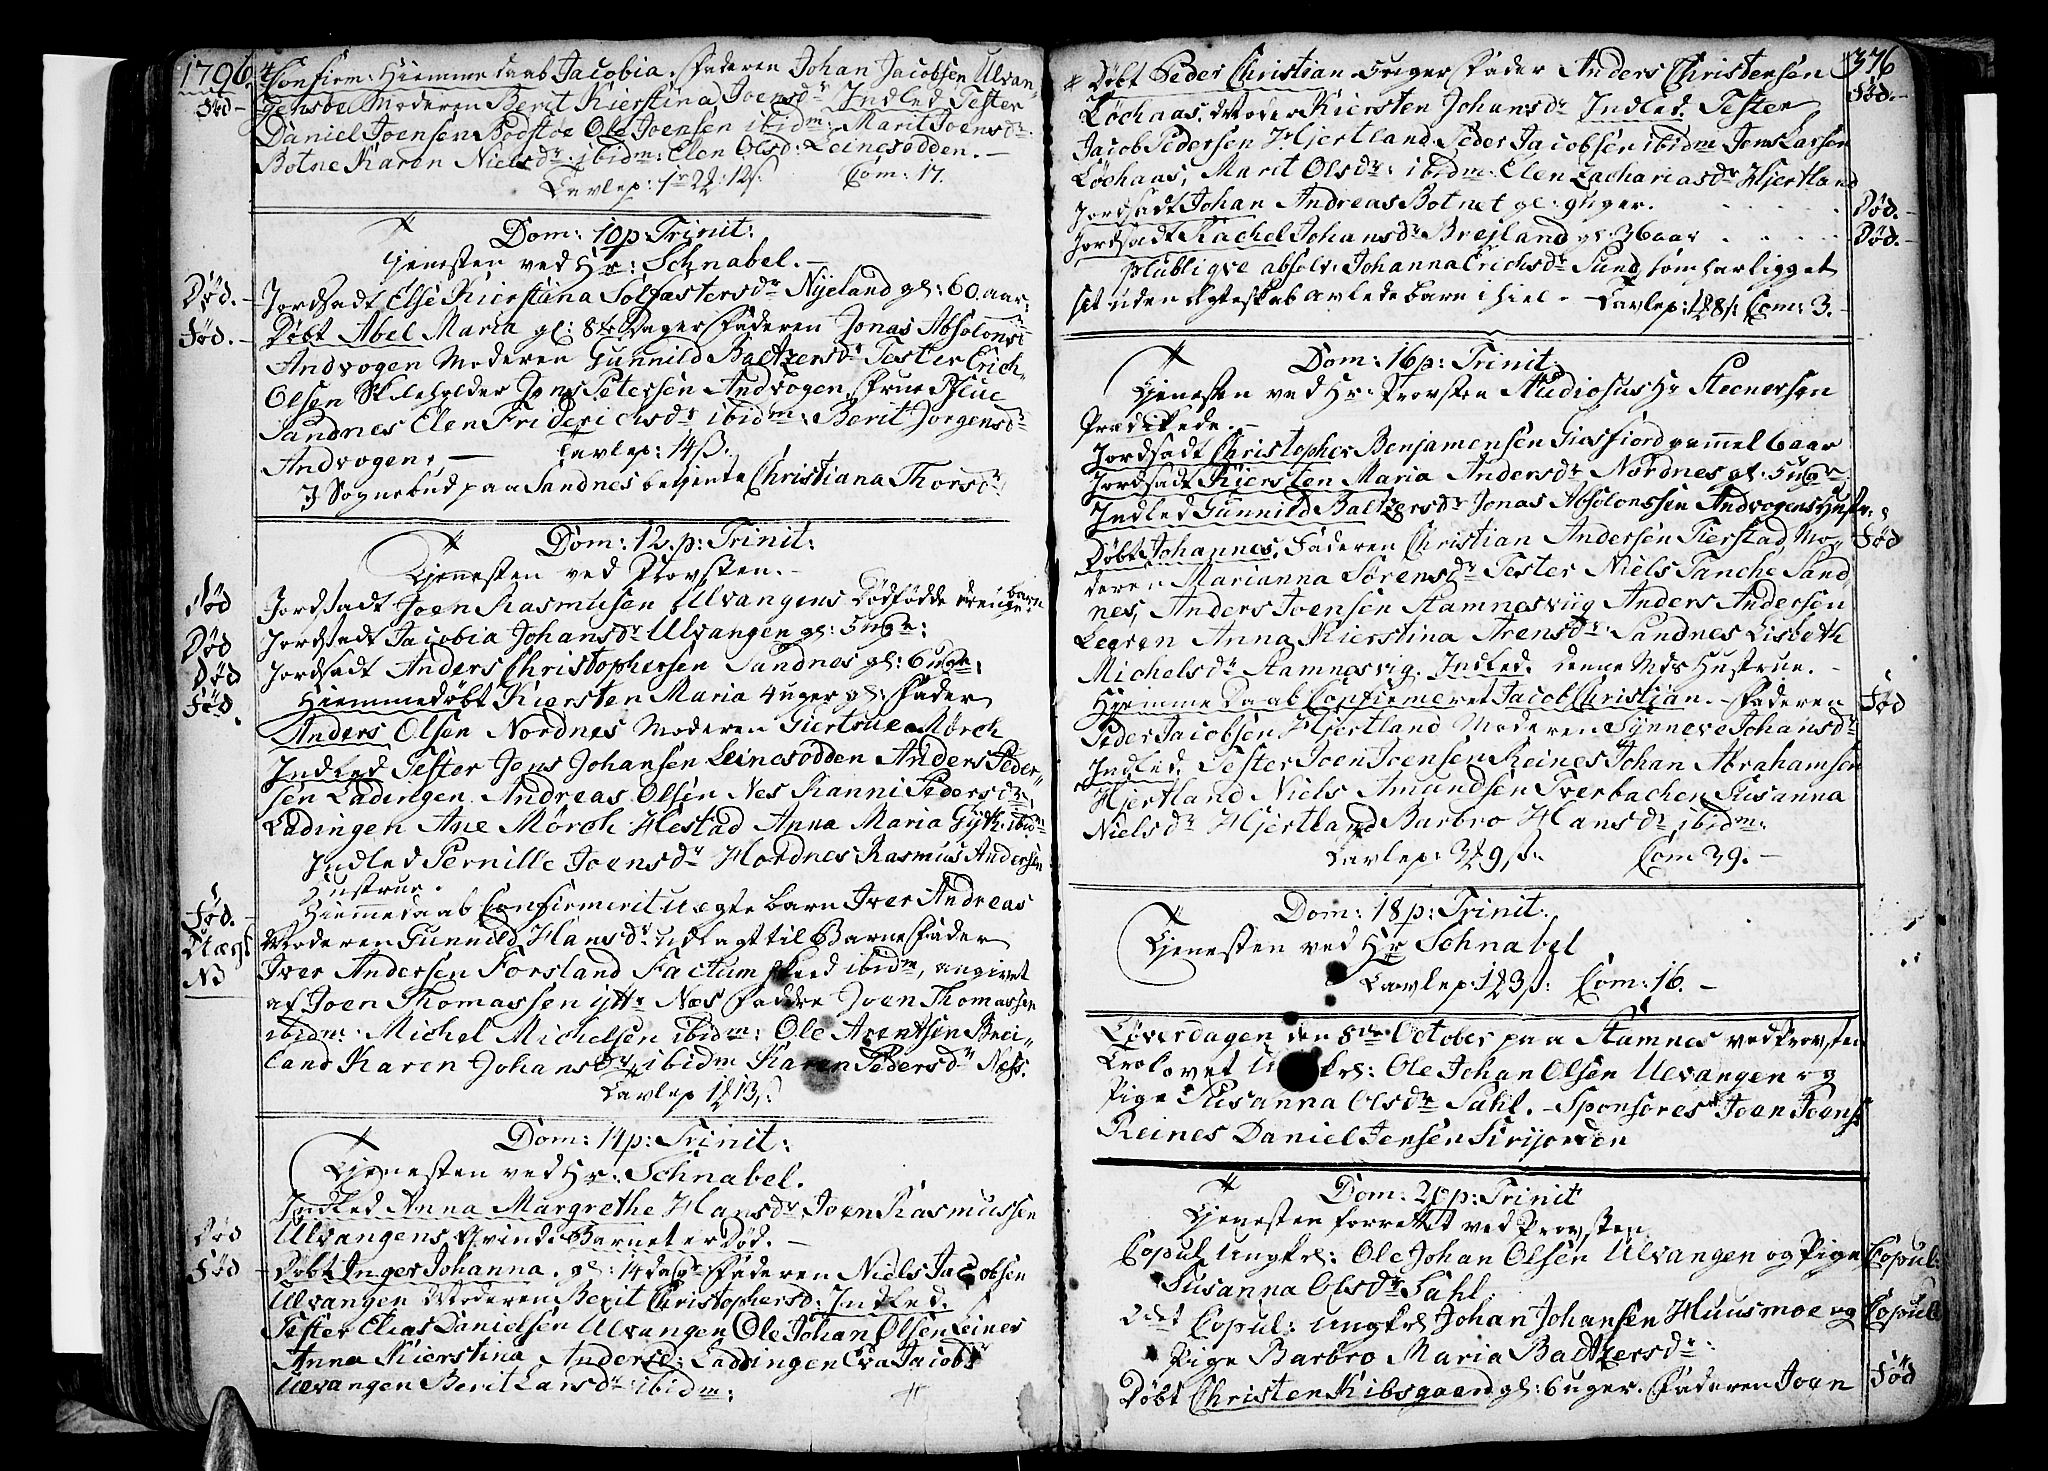 1796
Confirm: Hiemmedaab Jacobia. Faderen Johan Jacobsen Ulvan-
Fød - Moderen Berit Kierstina Joensdr Indled. Tester
Daniel Joensen Bodstøe Ole Joensen ibidm: Marit Joensdr
Botne Karen Nielsdr: ibidm: Elen Olsd: Leinesodden. -
Tavlep: 12ß. Com: 17.
Dom: 10 p: Trinit:
Tjenesten ved Hr: Schnabel. -
Død. - Jordsadt Else Kierstina Solfastersdr Nyeland gl: 60 aar.
Fød. - Døbt Abel Maria gl: 8te Dager Faderen Jonas Absolons:
Andvogen Moderen Gunnild Baltzersdr Tester Erich
Olsen Skileholder Jens Petersen Andvogen, Frue
Sandnes Elen Friderichsdr ibidm: Berit Jørgensdr
Andvogen. - Tavlep: 14ß.
I Sognebud paa Sandnes betjente Christiana Thorsdr
Dom: 12. p: Trinit:
Tjenesten ved Provsten. -
Død Jordsadt Joen Rasmusen Ulvangens Dødfødde drenge barn
Død Jordsadt Jacobia Johansdr Ulvangen gl: 5 uger:
Død Jordsadt Anders Christophersen Sandnes gl: 6 uger:
Fød. Hiemmedøbt Kiersten Maria 4 uger gl: Fader
Anders Olsen Nordnes Moderen Giertrue Mørch
Indled Tester Jens Johansen Leinesodden Anders Peder-
sen Ladingen Andreas Olsen Nes Ranni Pedersdr
Ladingen Ane Mørch Hestad Anna Maria Gyth ibidm
Indled Pernille Joensdr Hordnes Rasmus Andersen
Hustrue.
Fød. - Hiemmedaab Confirmerit uægte barn Iver Andreas
Uægt Moderen Gunnild Hansdr udlagt til Barnefader
NB Iver Andersen Forsland Factum skeed ibidm, angivet
af Joen Thomassen ytt: Næs Faddre Joen Thomassen
ibidm: Michel Michelsen ibidm: Ole Arentsen Brei-
land Karen Johansdr ibidm Karen Pedersdr Ness.
Tavlep 1 13ß
Dom: 14 p: Trinit:
Tjenesten ved Hr: Schnabel.
Indled Anna Margrethe Hansdr Joen Rasmussen
Død Ulvangens Qvinde Barnet er Død. -
Fød - Døbt Inger Johanna. gl: 14 dage Faderen Niels Jacobsen
Ulvangen Moderen Berit Christophersd: Indled.
Tester Elias Danielsen Ulvangen Ole Johan Olsen Leines
Anna Kierstina Andersd: Laddingen Eva Jacobsdr
Ulvangen Berit Larsdr ibidm:
376
Døbt Peder Christian uger Fader Anders Christensen Fød. -
Løchaas. Moder Kiersten Johansdr Indled. Tester
Jacob Pedersen Hjertland Peder Jacobsen ibidm Jens Larsen
Løchaas, Marit Olsdr: ibidm: Elen Zachariasdr Hjertland
Jordsadt Johan Andreas Botnet gl: 9 uger. Død. -
Jordsadt Rachel Johansdr Brejland gl: 36 aar Død. -
Publiqve absolv: Johanna Erichsdr Sund som har ligget
sit uden Ægteskab avlede barn ihiel. - Tavlep: 1 8ß: Com: 3. -
Dom: 16 p: Trinit:
Tjenesten ved Hr: Provsten Studiosus Hr Steenersen
Prædikede. -
Jordsadt Christopher Benjamensen Giesfiord gammel 6 aar
Jordsadt Kiersten Maria Andersdr Nordnes gl: 5 uger
Indled Gunnild Baltzersdr Jonas Absolonssen Andvogens Hustr:
Døbt Johannes, Faderen Christian Andersen Tierstad Mo- Fød
deren Marianna Sørensdr Tester Niels Tanche Sand-
nes, Anders Joensen Stamnesviig Anders Andersen
Leeren Anna Kierstina Arensdr Sandnes Lisbeth
Michelsdr Stamnesvig. Indled. denne Mds Hustrue. -
Hjemme Daab Confirmeret Jacob Christian. - Faderen Fød
Peder Jacobsen Hjertland Moderen Synneve Johansdr
Indled. Tester Joen Joensen Reines Johan Abrahamsen
Hjertland Niels Amundsen Tverbachen Susanna
Nielsdr Hjertland Barbro Hansdr ibidm:
Tavlep: 3 9ß: Com 39. -
Dom: 18 p: Trinit:
Tjenesten ved Hr Schnabel
Tavlep: 1 3ß: Com: 16. -
Løverdagen den 8de October paa Stamnes ved Provsten
Trolovet Ungkrl: Ole Johan Olsen Ulvangen og
Pige Susanna Olsdr Sahl. - Sponsores Joen Joens:
Reines Daniel Jensen Sirijorden
Dom: 20 p: Trinit
Tjenesten forrettet ved Provsten
Copul Ungkrl: Ole Johan Olsen Ulvangen og Pige Copul:
Susanna Olsdr Sahl
Copul: Ungkrl Johan Johansen Huusmoe og Copul
Pige Barbro Maria Baltzersdr
Døbt Christen Kibsgaard gl: 6 uger. Faderen Joen Fød